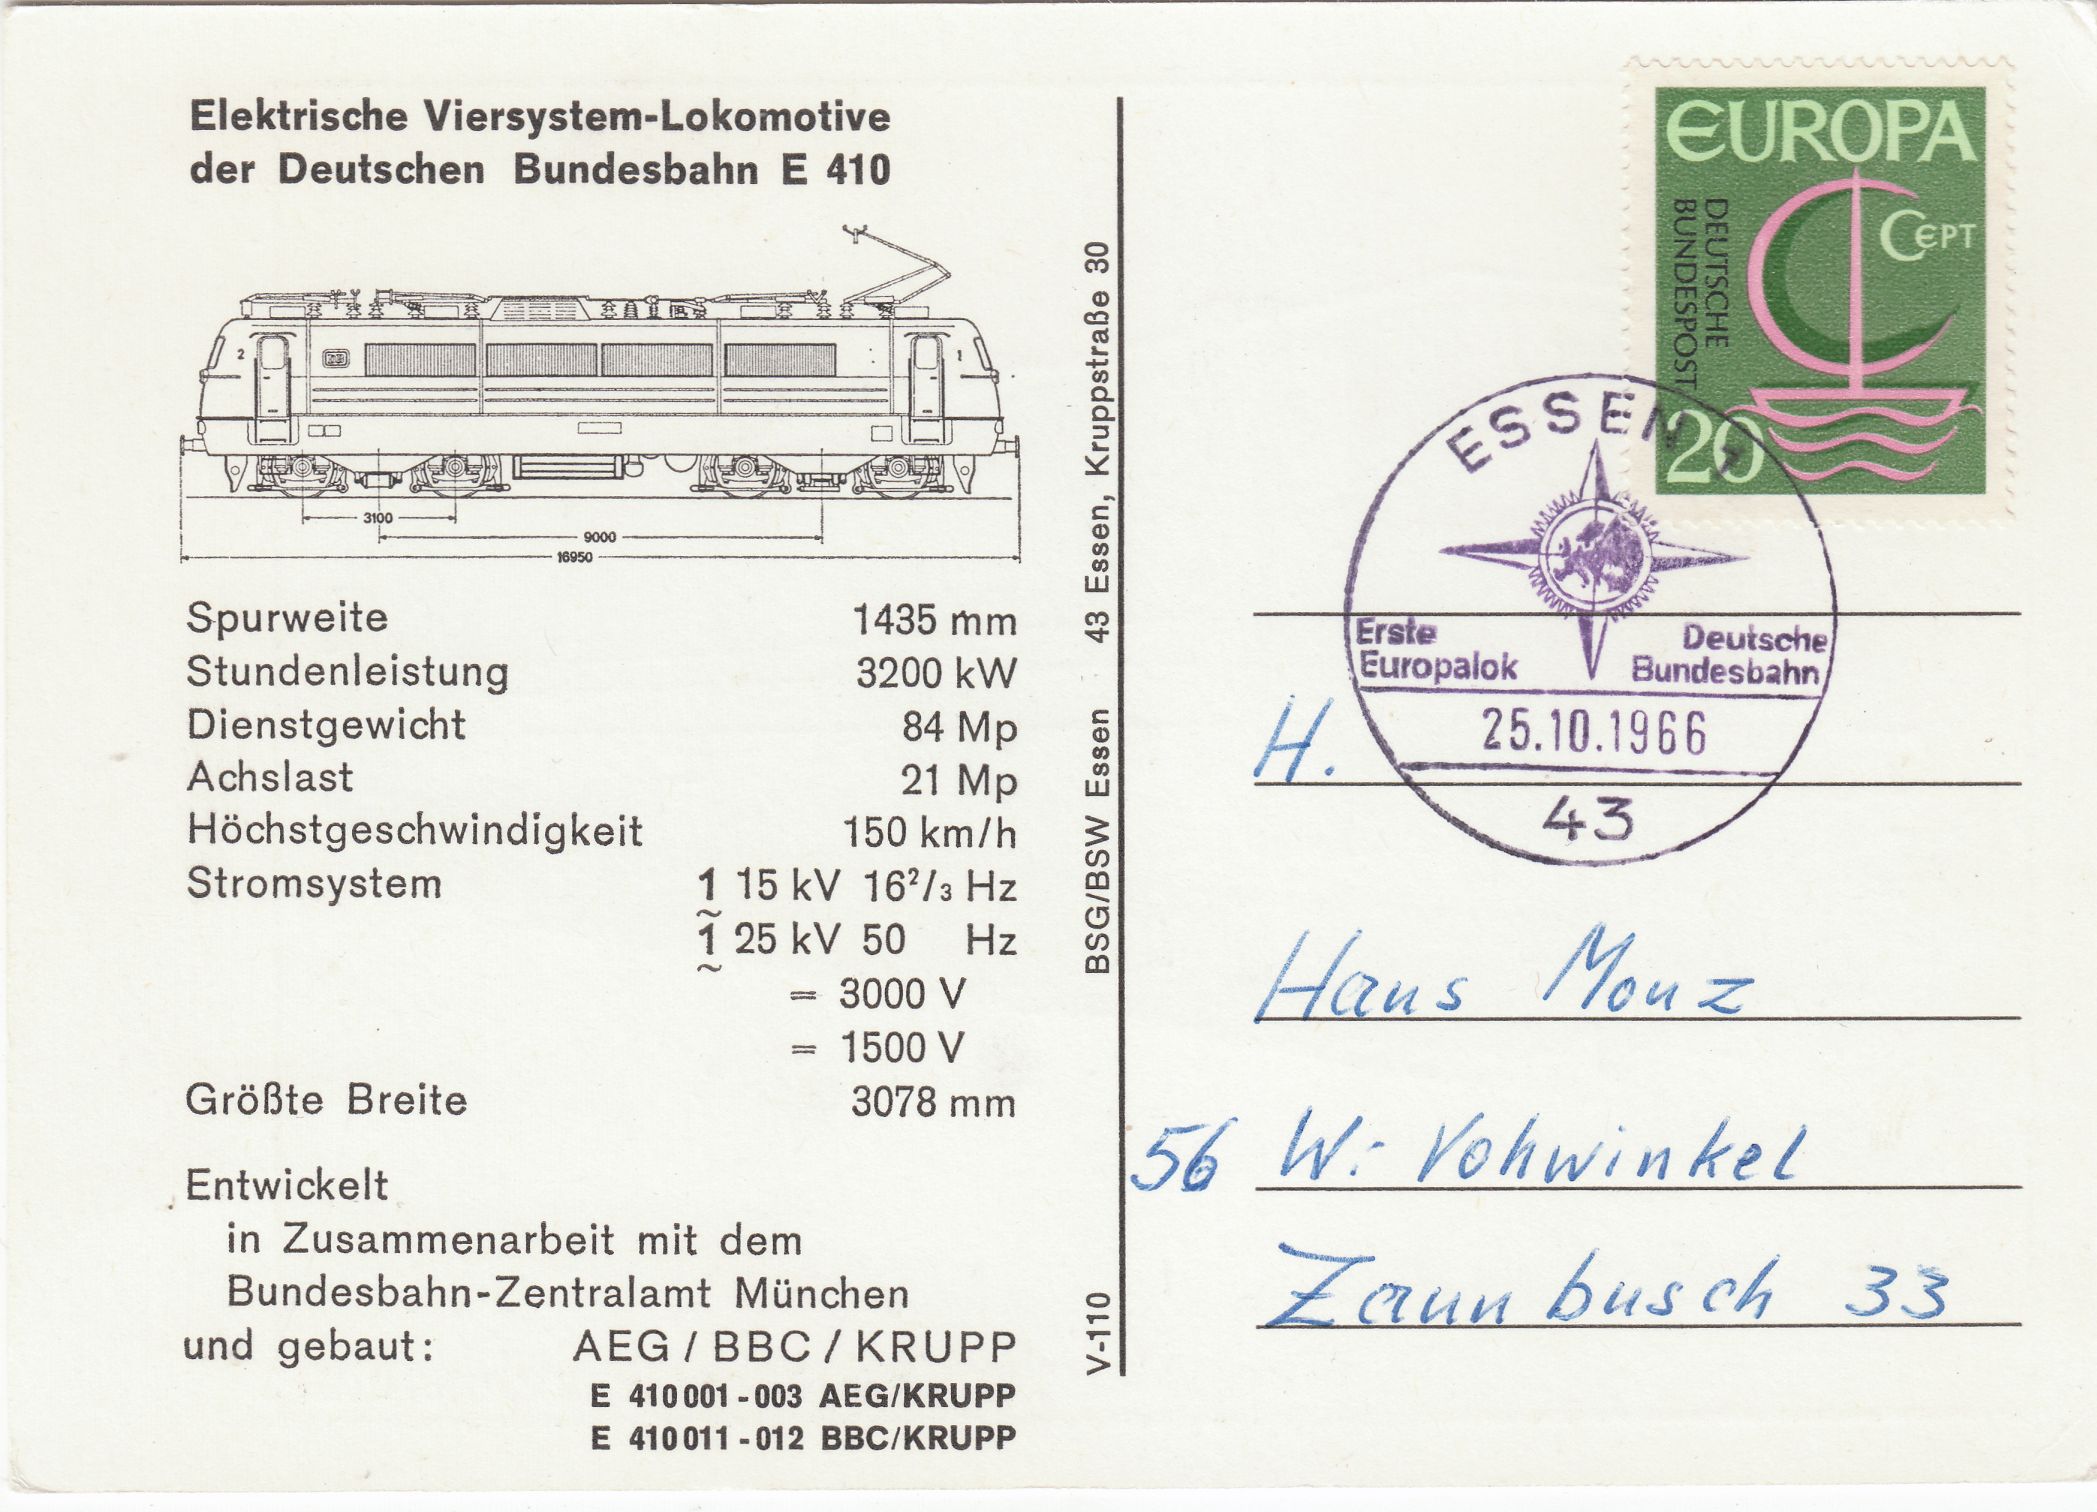 Elektrische Viersystem-Lokomotive
der Deutschen Bundesbahn E 410
2
DB
1
3100
9000
16950
Spurweite 1435 mm
Stundenleistung 3200 kW
Dienstgewicht 84 Mp
Achslast 21 Mp
Höchstgeschwindigkeit 150 km/h
Stromsystem 1~ 15 kV 16²/₃ Hz
1~ 25 kV 50 Hz
= 3000 V
= 1500 V
Größte Breite 3078 mm
Entwickelt
in Zusammenarbeit mit dem
Bundesbahn-Zentralamt München
und gebaut: AEG / BBC / KRUPP
E 410 001 - 003 AEG/KRUPP
E 410 011 - 012 BBC/KRUPP
V-110 BSG/BSW Essen 43 Essen, Kruppstraße 30
EUROPA
CEPT
DEUTSCHE
BUNDESPOST
20
ESSEN 1
Erste Deutsche
Europalok Bundesbahn
25.10.1966
43
H.
Hans Monz
56 W.-Vohwinkel
Zaunbusch 33